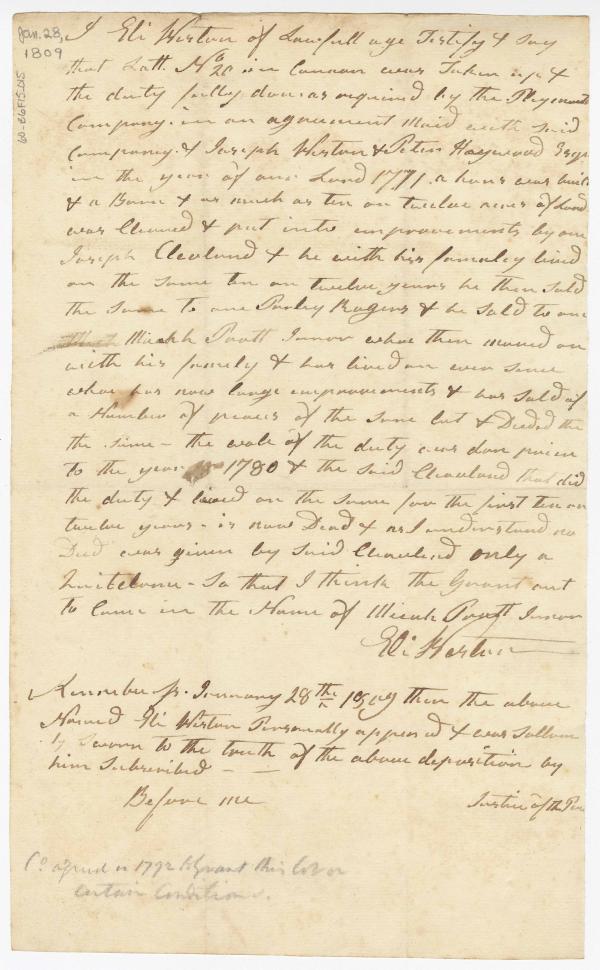 Jan. 28,
1809
60-86F15.015
I Eli Weston of Lawfull age Testify & Say
that Lott No 26 in Canaan was Taken up &
the duty fully don as required by the Plymouth
Company. in an agreement Maid with Said
Company & Joseph Weston & Peter Haywood Esqr
in the year of our Lord 1771. a hous was built
& a Barn & as much as ten or twelve acres of Land
was Cleared & put into improvements by one
Joseph Cleveland & he with his famaley lived
on the same ten or twelve years he then Sold
the Same to one Perley Rogers & he Sold to one
Micah Pratt Junor whoe then moved on
with his famely & has lived on ever since
whoe has now large improvements & has Sold of
a Number of peaces of the same Lot & Deeded the
the same - the wole of the duty was don prior
to the year 1780 & the said Cleaveland that did
the duty & lived on the same for the first ten or
twelve years - is now Dead & as I understand no
Deed was given by Said Cleaveland only a
Quitclame - So that I think the Grant out
to Come in the Name of Micah Pratt Junor
Eli Weston
Kennebec Ss. January 28th 1809 then the above
Named Eli Weston Personally appeared & was Sollom
ly Sworn to the truth of the above deposition by
him Subscribed -
Before me Justice of the Pea
Co agreed in 1792 to grant this lot on
certain Conditions.